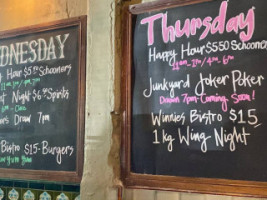 WEDNESDAY
Hour $5.50 Schooners
Night $6.50 Spirits
Draw 7pm
Bistro $15-Burgers
Thursday
Happy Hour $5.50 Schooners
11am-1pm/4pm-6pm
Junkyard Joker Poker
Drawn 7pm-Coming Soon!
Winnies Bistro $15
1kg Wing Night